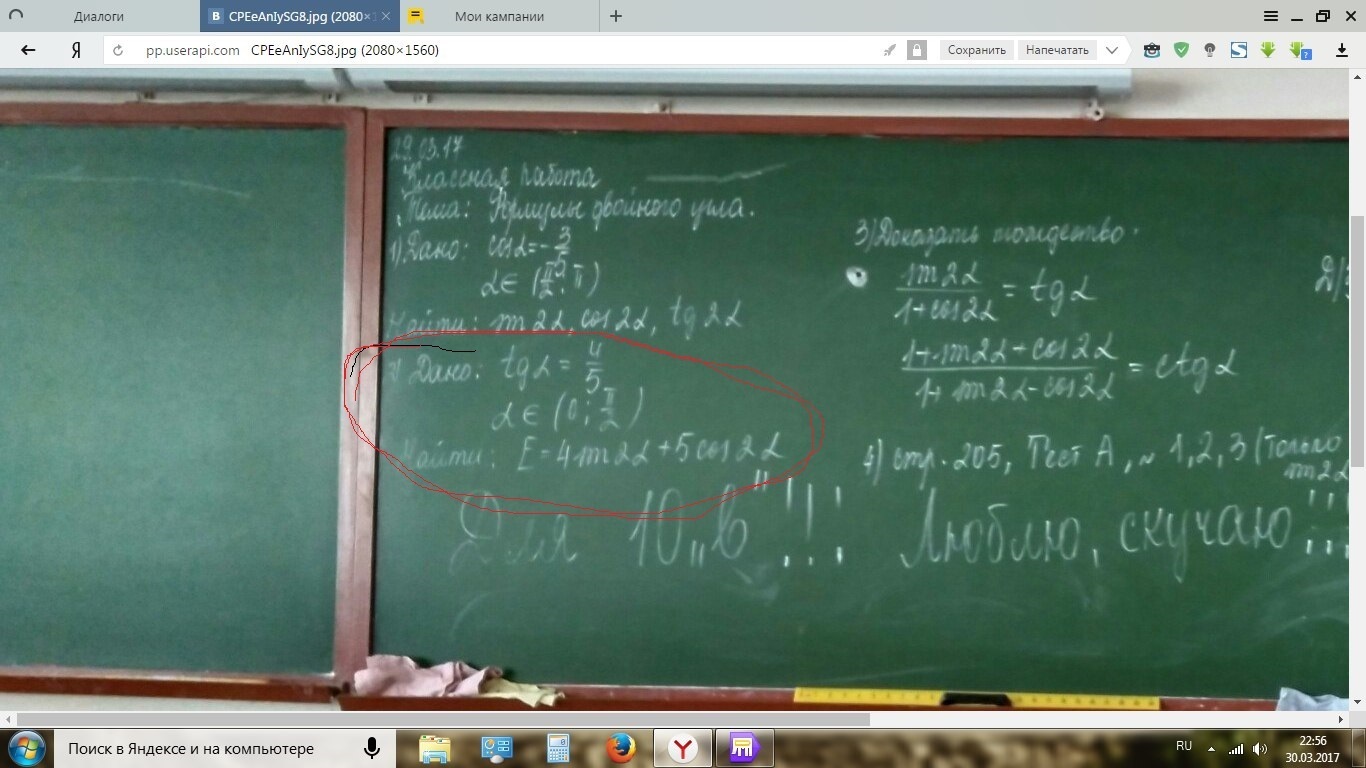 Диалоги
CPEeAnIySG8.jpg (2080×1
Мои кампании
pp.userapi.com CPEeAnIySG8.jpg (2080×1560)
Сохранить
Напечатать
29.03.17
Классная работа
Тема: Формулы двойного угла.
1) Дано: cosα = -3/5
α ∈ (π/2; π)
Найти: sin2α, cos2α, tg2α
2) Дано: tgα = 4/5
α ∈ (0; π/2)
Найти: E = 4sin2α + 5cos2α
3) Доказать тождество.
sin2α / 1+cos2α = tgα
1+sin2α+cos2α / 1+sin2α-cos2α = ctgα
4) стр. 205, Тест А, № 1, 2, 3 (только
sin2α
Д/з
Для 10 „в" !!! Люблю, скучаю !!!
Поиск в Яндексе и на компьютере
RU
22:56
30.03.2017